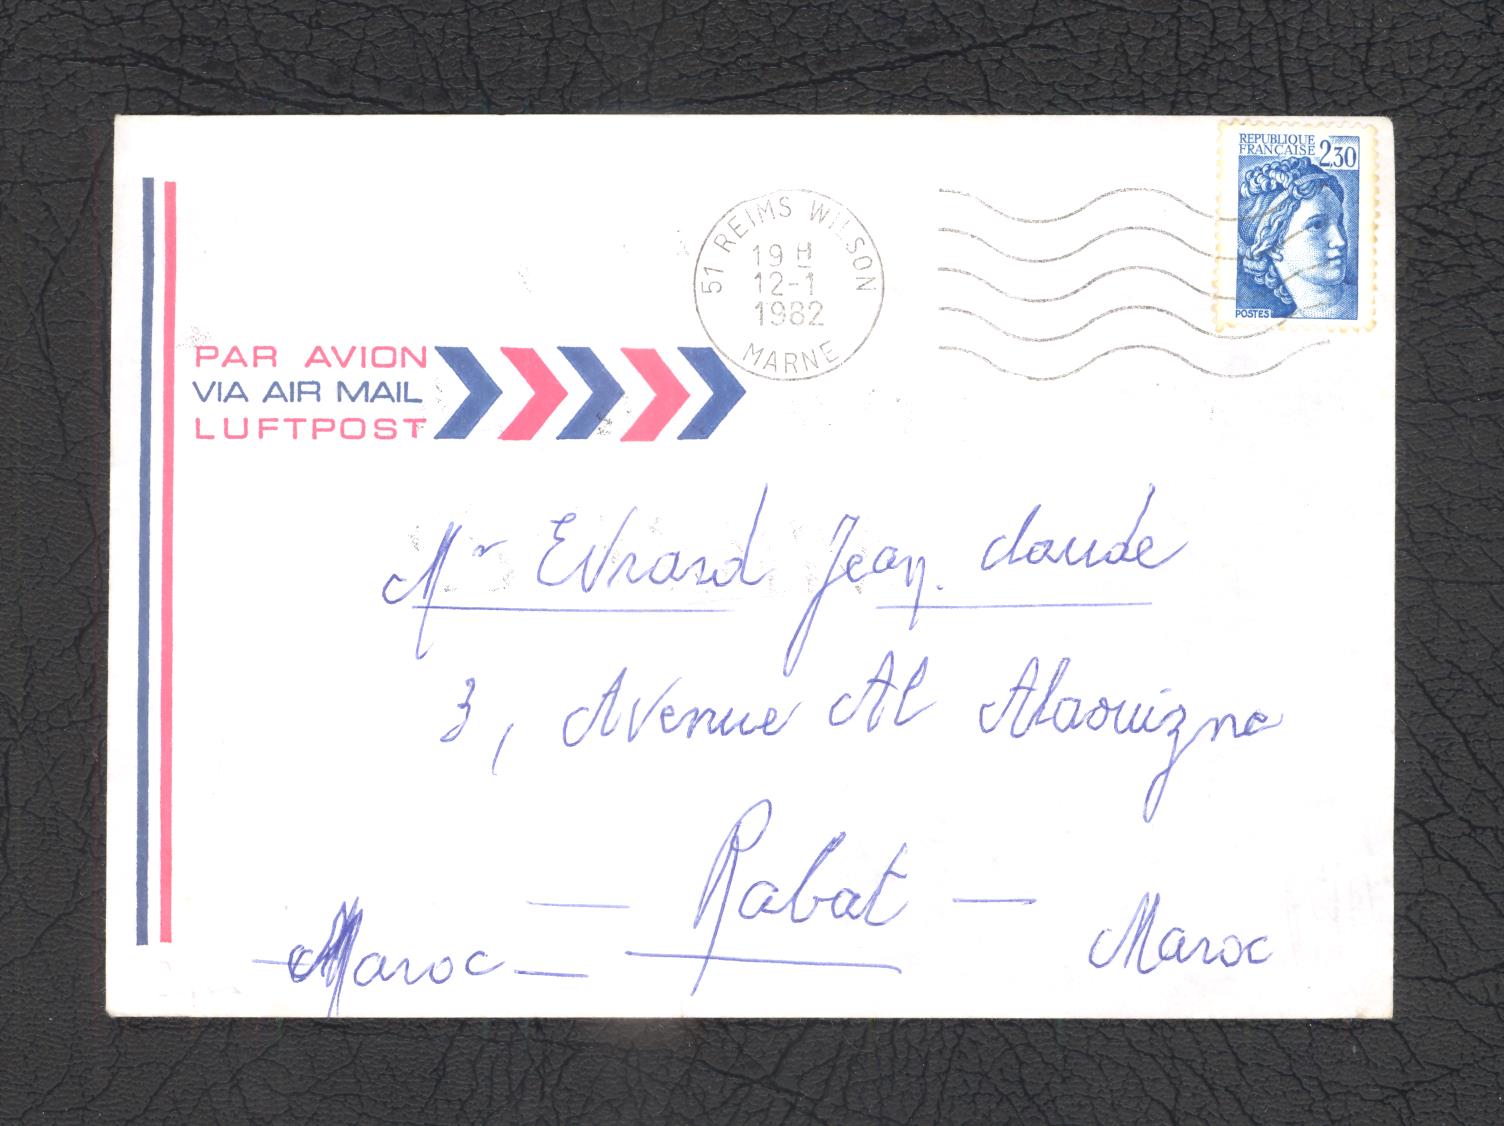 REPUBLIQUE
FRANÇAISE 2,30
POSTES
51 REIMS WILSON
19 H
12-1
1982
MARNE
PAR AVION
VIA AIR MAIL
LUFTPOST
Mr Evrard Jean claude
3, Avenue Al Alaouizne
— Rabat —
— Maroc — Maroc